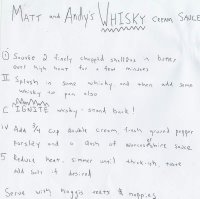 MATT and Andy's WHISKY CREAM SAUCE
① Smoke 2 finely chopped shallots in butter
over high heat for a few minutes
II Splash in some whisky and then add some
whisky to pan also
C IGNITE whisky - stand back!
IV Add 3/4 cup double cream fresh ground pepper
parsley and a dash of worcestershire sauce
5 Reduce heat. simmer until thick-ish taste
add salt if desired
Serve with haggis neats & nappies